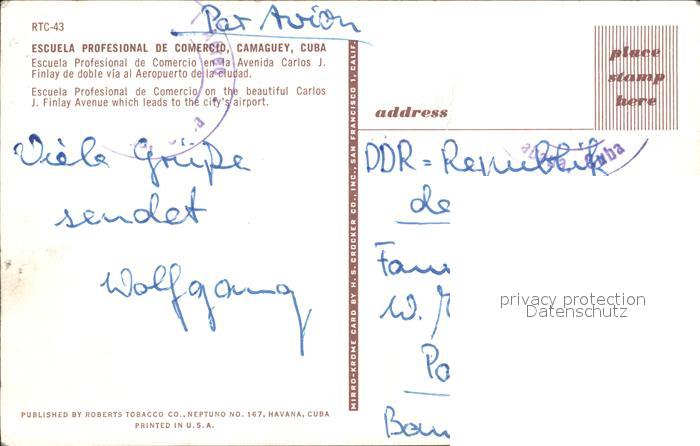 Par Avion
RTC-43
ESCUELA PROFESIONAL DE COMERCIO, CAMAGUEY, CUBA
Escuela Profesional de Comercio en la Avenida Carlos J.
Finlay de doble vía al Aeropuerto de la ciudad.
Escuela Profesional de Comercio on the beautiful Carlos
J. Finlay Avenue which leads to the city's airport.
Viele Grüße
sendet
Wolfgang
PUBLISHED BY ROBERTS TOBACCO CO., NEPTUNO NO. 167, HAVANA, CUBA
PRINTED IN U.S.A.
MIRRO-KROME CARD BY H. S. CROCKER CO., INC., SAN FRANCISCO 1, CALIF.
place
stamp
here
address
Cuba
DDR = Republik
de
Fam
W.
Po
Bau
privacy protection
Datenschutz